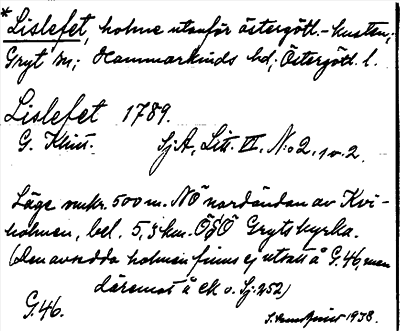 * Lislefet, holme utanför östergötl.-kusten;
Gryt sn; Hammarkinds hd; Östergötl. l.
Lislefet 1789.
G. Klint. SjA, Litt. VI, N:o 2, 2.
Läge omkr. 500 m. NÖ nordändan av Kvi-
holmen, bel. 5,3 km. ÖSÖ Gryts kyrka.
(Den avsedda holmen finns ej utsatt å G.46, men
däremot å ek o. Sj:252)
G46.
1938.